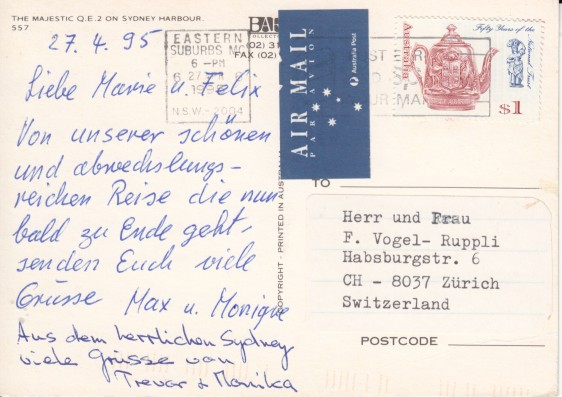 THE MAJESTIC Q.E.2 ON SYDNEY HARBOUR.
557
27.4.95
Liebe Marie u. Felix
Von unserer schönen
und abwechslungs-
reichen Reise die nun
bald zu Ende geht,
senden Euch viele
Grüsse Max u. Monique
Aus dem herrlichen Sydney
viele Grüsse von
Trevor & Monika
EASTERN
SUBURBS MC
6 -PM
27
N.S.W. - 2004
(02) 31
FAX (02)
COPYRIGHT - PRINTED IN AUSTRA
AIR MAIL
PAR AVION
Australia Post
Fifty Years of the
National Trust
Australia
$1
TO
Herr und Frau
F. Vogel- Ruppli
Habsburgstr. 6
CH - 8037 Zürich
Switzerland
POSTCODE